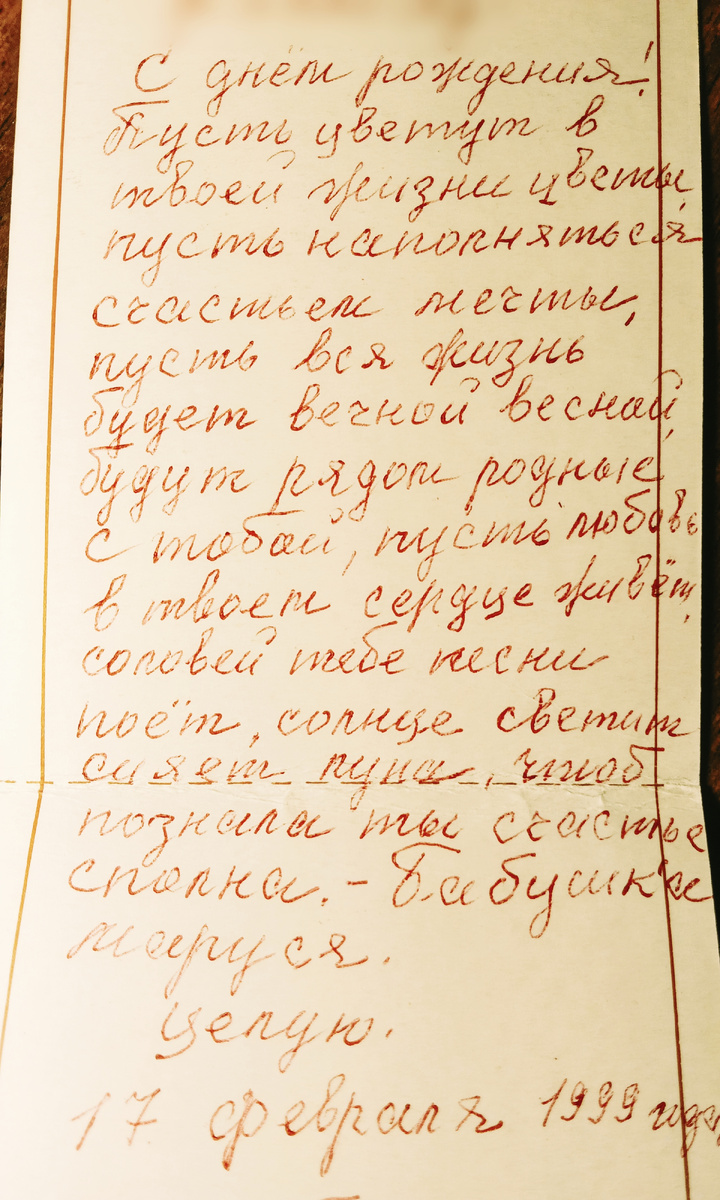 С днём рождения!
Пусть цветут в
твоей жизни цветы,
пусть наполняться
счастьем мечты,
пусть вся жизнь
будет вечной весной,
будут рядом родные
с тобой, пусть любовь
в твоем сердце живёт,
соловей тебе песни
поёт, солнце светит
сияет луна, чтоб
познала ты счастье
сполна. - Бабушка
маруся.
Целую.
17 февраля 1999 года